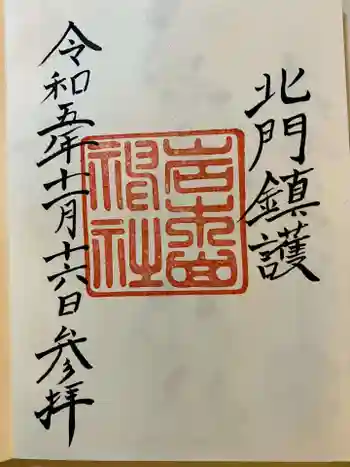 北門鎮護
岩木山
神社
令和五年十一月十六日参拝